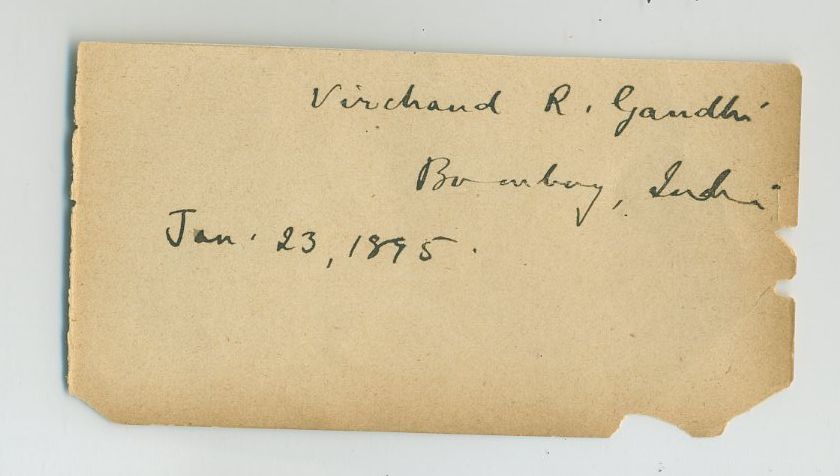 Virchand R. Gandhi
Bombay, India
Jan. 23, 1895.